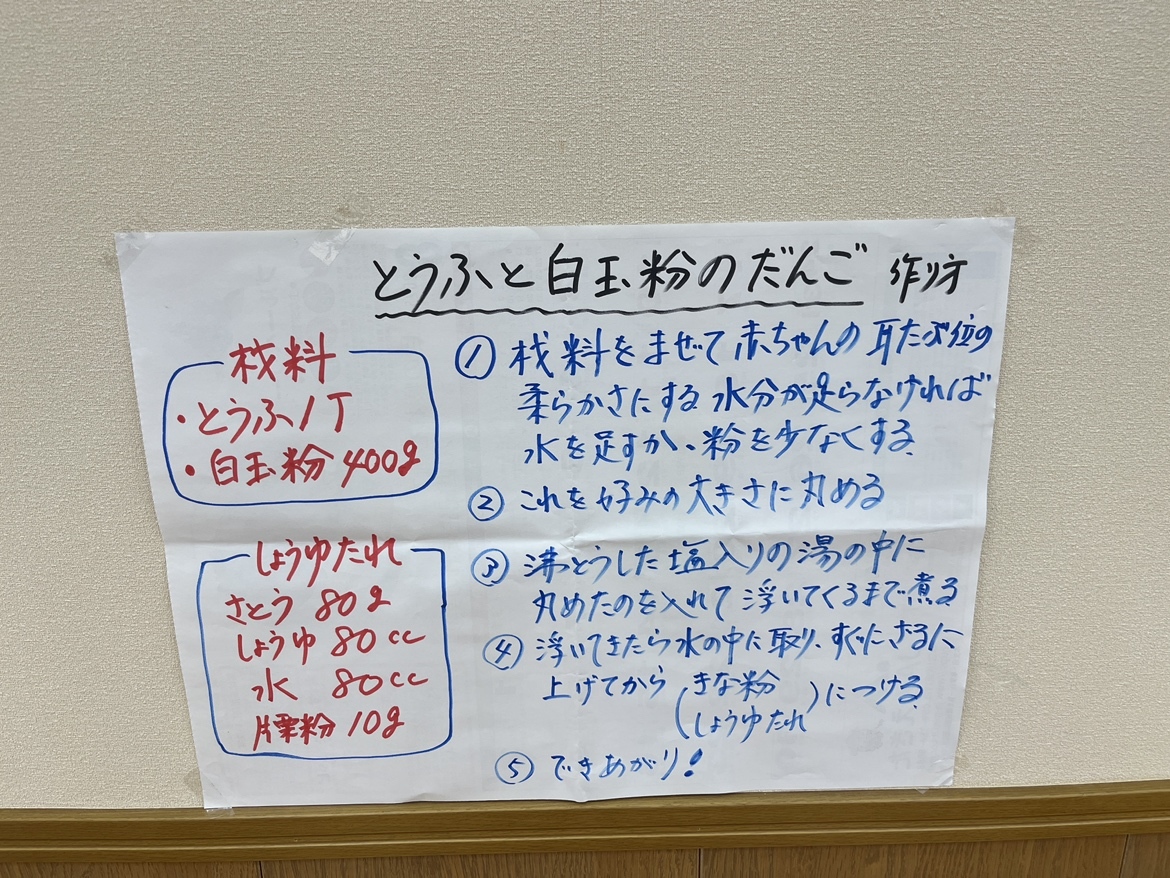 とうふと白玉粉のだんご 作り方
材料
・とうふ1丁
・白玉粉400g
しょうゆたれ
さとう 80g
しょうゆ 80cc
水 80cc
片栗粉 10g
① 材料をまぜて赤ちゃんの耳たぶ位の
柔らかさにする。水分が足らなければ
水を足すか、粉を少なくする。
② これを好みの大きさに丸める
③ 沸とうした塩入りの湯の中に
丸めたのを入れて浮いてくるまで煮る。
④ 浮いてきたら水の中に取り、すぐにざるに
上げてから(きな粉
しょうゆたれ)につける。
⑤ できあがり!